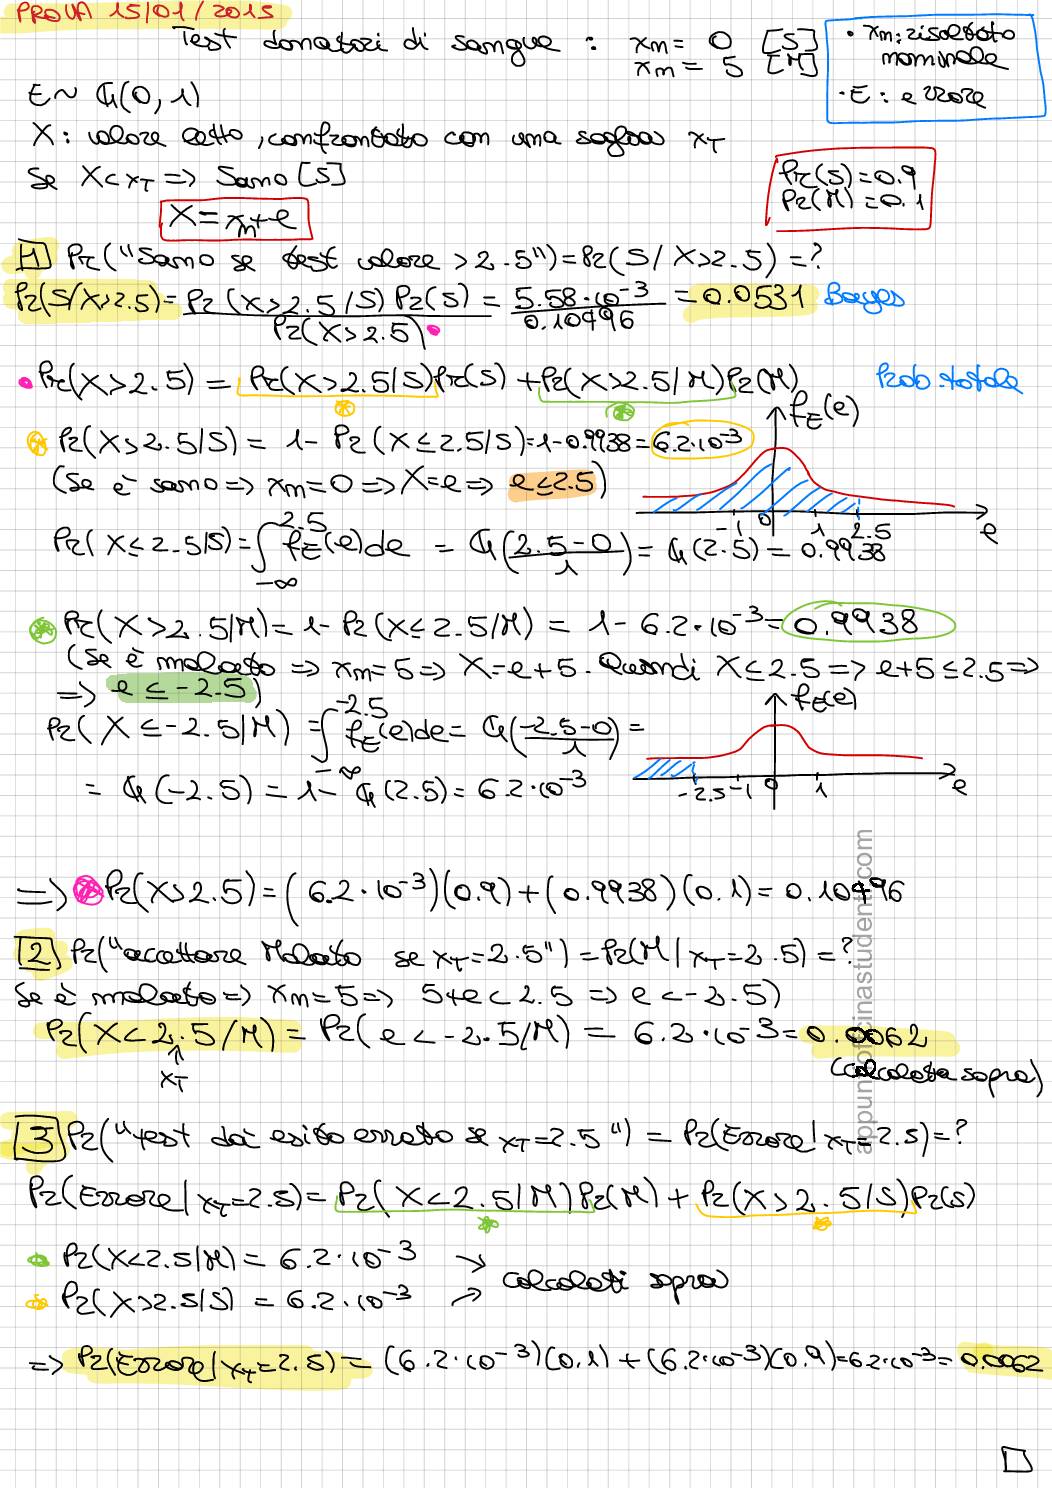 PROVA 15/01/2015
Test donatori di sangue : xm = 0 [S]
xm = 5 [M]
• xm: risultato
nominale
• E : errore
E ~ G(0, 1)
X : valore letto, confrontato con una soglia xT
Se X < xT => Sano [S]
Pr(S) = 0.9
Pr(M) = 0.1
X = xm + e
1 Pr("Sano se test valore > 2.5") = Pr(S/X>2.5) = ?
Pr(S/X>2.5) = Pr(X>2.5/S) Pr(S) / Pr(X>2.5) = 5.58·10⁻³ / 0.10496 = 0.0531 Bayes
• Pr(X>2.5) = Pr(X>2.5/S)Pr(S) + Pr(X>2.5/M)Pr(M) Prob. totale
Pr(X>2.5/S) = 1 - Pr(X≤2.5/S) = 1-0.9938 = 6.2·10⁻³
(Se è sano => xm=0 => X=e => e≤2.5)
fE(e)
-1 0 1 2.5 e
Pr(X≤2.5/S) = ∫_{-∞}^{2.5} fE(e)de = G((2.5-0)/1) = G(2.5) = 0.9938
Pr(X>2.5/M) = 1- Pr(X≤2.5/M) = 1 - 6.2·10⁻³ = 0.9938
(Se è malato => xm=5 => X=e+5. Quindi X≤2.5 => e+5≤2.5 =>
=> e ≤ -2.5)
fE(e)
Pr(X≤-2.5/M) = ∫_{-∞}^{-2.5} fE(e)de = G((-2.5-0)/1) =
= G(-2.5) = 1- G(2.5) = 6.2·10⁻³
-2.5 -1 0 1 e
=> Pr(X>2.5) = (6.2·10⁻³)(0.9) + (0.9938)(0.1) = 0.10496
2 Pr("accettare Malato se xT=2.5") = Pr(M/xT=2.5) = ?
Se è malato => xm=5 => 5+e<2.5 => e<-2.5)
Pr(X<2.5/M) = Pr(e<-2.5/M) = 6.2·10⁻³ = 0.0062
↑
xT
(calcolata sopra)
3 Pr("test dà esito errato se xT=2.5") = Pr(Errore/xT=2.5) = ?
Pr(Errore/xT=2.5) = Pr(X<2.5/M)Pr(M) + Pr(X>2.5/S)Pr(S)
Pr(X<2.5/M) = 6.2·10⁻³
calcolati sopra
Pr(X>2.5/S) = 6.2·10⁻³
=> Pr(Errore/xT=2.5) = (6.2·10⁻³)(0.1) + (6.2·10⁻³)(0.9) = 6.2·10⁻³ = 0.0062
appuntiofficinastudenti.com